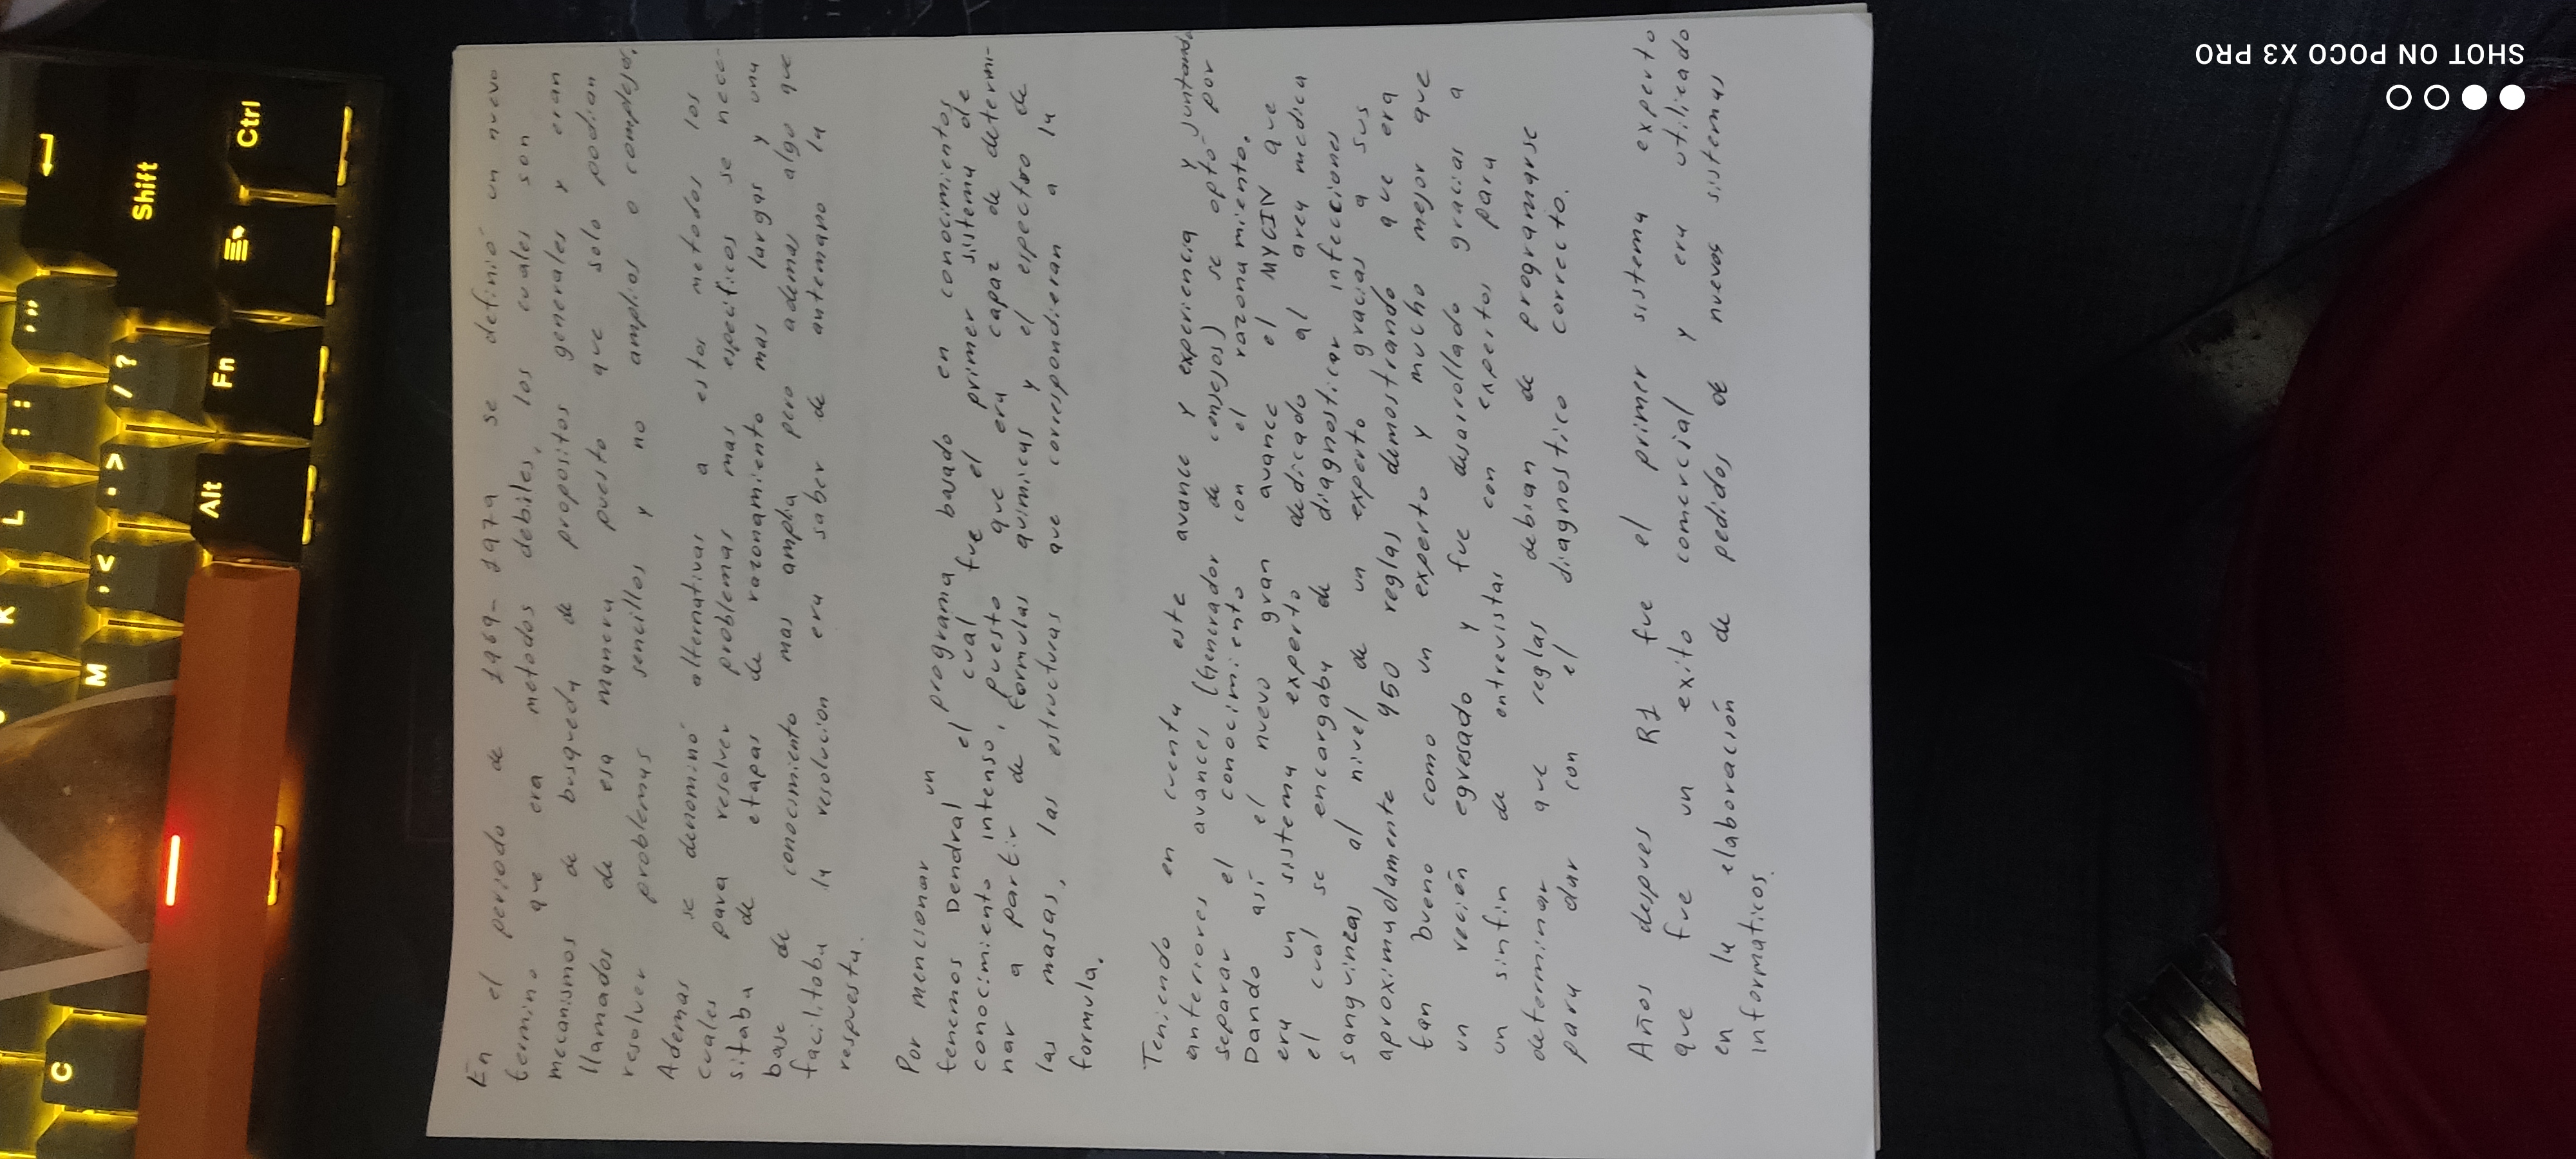 En el periodo de 1969-1979 se definió un nuevo
termino que era metodos debiles, los cuales son
mecanismos de busqueda de propositos generales y eran
llamados de esa manera puesto que solo podian
resolver problemas sencillos y no amplios o complejos.
Ademas se denominó alternativas a estos metodos los
cuales para resolver problemas mas especificos se nece-
sitaba de etapas de razonamiento mas largas y una
base de conocimiento mas amplia pero ademas algo que
facilitaba la resolucion era saber de antemano la
respuesta.
Por mencionar un programa basado en conocimientos
tenemos Dendral el cual fue el primer sistema de
conocimiento intenso, puesto que era capaz de determi-
nar a partir de formulas quimicas y el espectro de
las masas, las estructuras que correspondieran a la
formula.
Teniendo en cuenta este avance y experiencia y juntando
anteriores avances (Generador de consejos) se optó por
separar el conocimiento con el razonamiento.
Dando así el nuevo gran avance el MYCIN que
era un sistema experto dedicado al area medica
el cual se encargaba de diagnosticar infecciones
sanguineas al nivel de un experto gracias a sus
aproximadamente 450 reglas demostrando que era
tan bueno como un experto y mucho mejor que
un recién egresado y fue desarrollado gracias a
un sinfin de entrevistas con expertos para
determinar que reglas debian de programarse
para dar con el diagnostico correcto.
Años despues R1 fue el primer sistema experto
que fue un exito comercial y era utilizado
en la elaboración de pedidos de nuevos sistemas
informaticos.
C
M
K
L
Alt
Fn
Shift
Ctrl
SHOT ON POCO X3 PRO